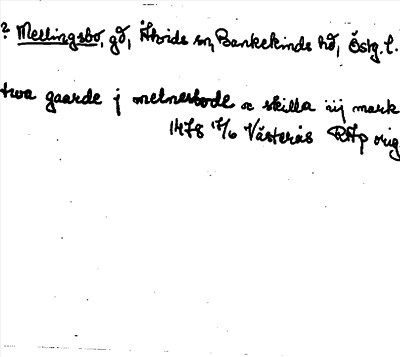 ? Mellingsbo, gd, Åtvids sn, Bankekinds hd, Östg. l.
twa gaarde j melnesbode æ skilla iiij mark
1478 17/6 Västerås RAp orig